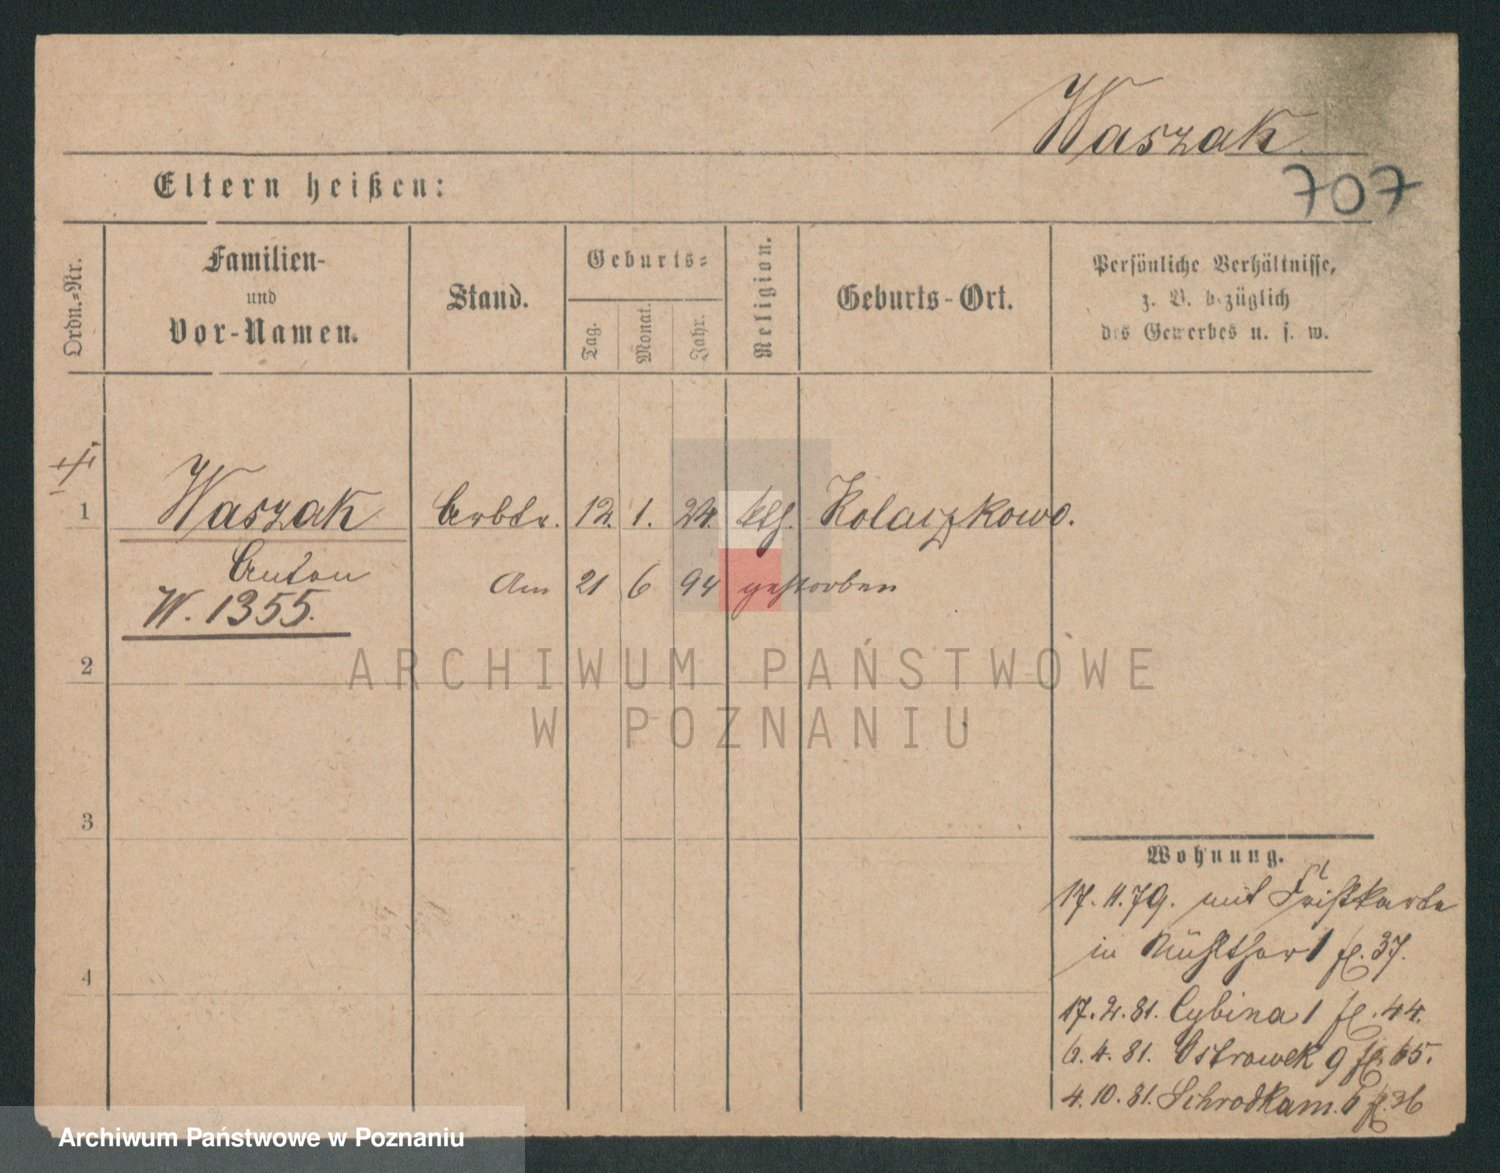 Waszak
707
Eltern heißen:
Ordn.-Nr.
Familien-
und
Vor-Namen.
Stand.
Geburts-
Tag.
Monat.
Jahr.
Religion.
Geburts-Ort.
Persönliche Verhältnisse,
z. B. bezüglich
des Gewerbes u. s. w.
1 Waszak Arbtr. 12. 1. 24. klh. Kolaczkowo.
Anton
Am 21 6 94 gestorben
W. 1355.
2
ARCHIWUM PAŃSTWOWE
W POZNANIU
3
Wohnung.
17. 11. 79. mit Fristkarte
in Mühlthor 1 fl. 37.
4
17. 2. 81. Cybina 1 fl. 44.
6. 4. 81. Ostrowek 9 fl. 65.
4. 10. 81. Schrodkam. 6 fl. 36
Archiwum Państwowe w Poznaniu